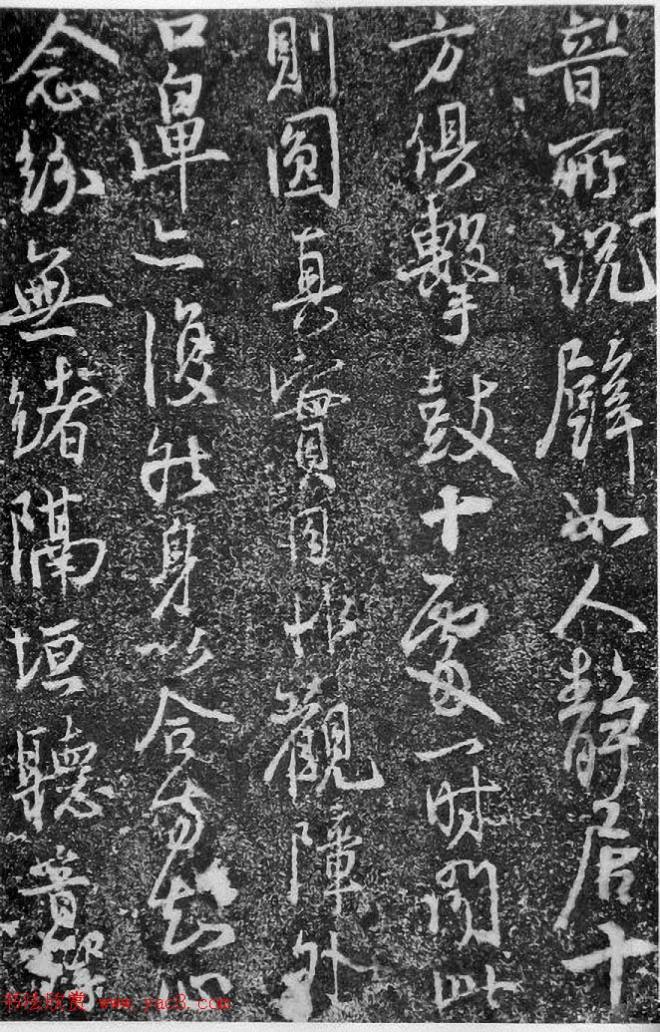 音所説譬如人靜居十
方俱擊鼓十處一時聞此
則圓真實目非觀障外
口鼻亦復然身以合方知心
念紛無緒隔垣聽音響
书法欣赏 www.yac8.com